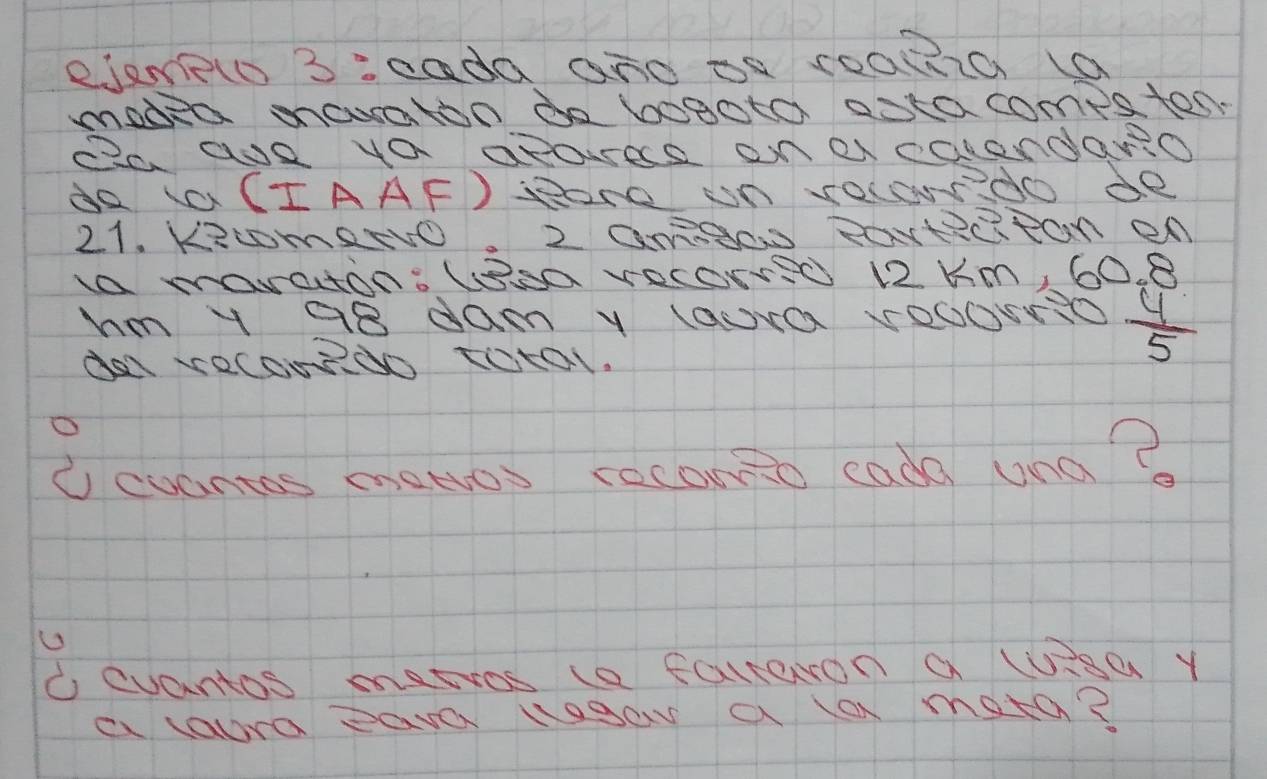 ejemplo 3: cada año se realiza la
media maraton de bogota esta competen-
cia que ya aparece en el calendario
de la (IAAF) tiene un recorrido de
21. Kilometro. 2 amigas participan en
la maratón: luisa recorrio 12 Km, 60.8
hm y 98 dam y laura recorrio 4/5
del recorrido total.
¿cuantos metros recorrio cada una?
¿cuantos metros le faltaron a luisa y
a laura para llegar a la meta?